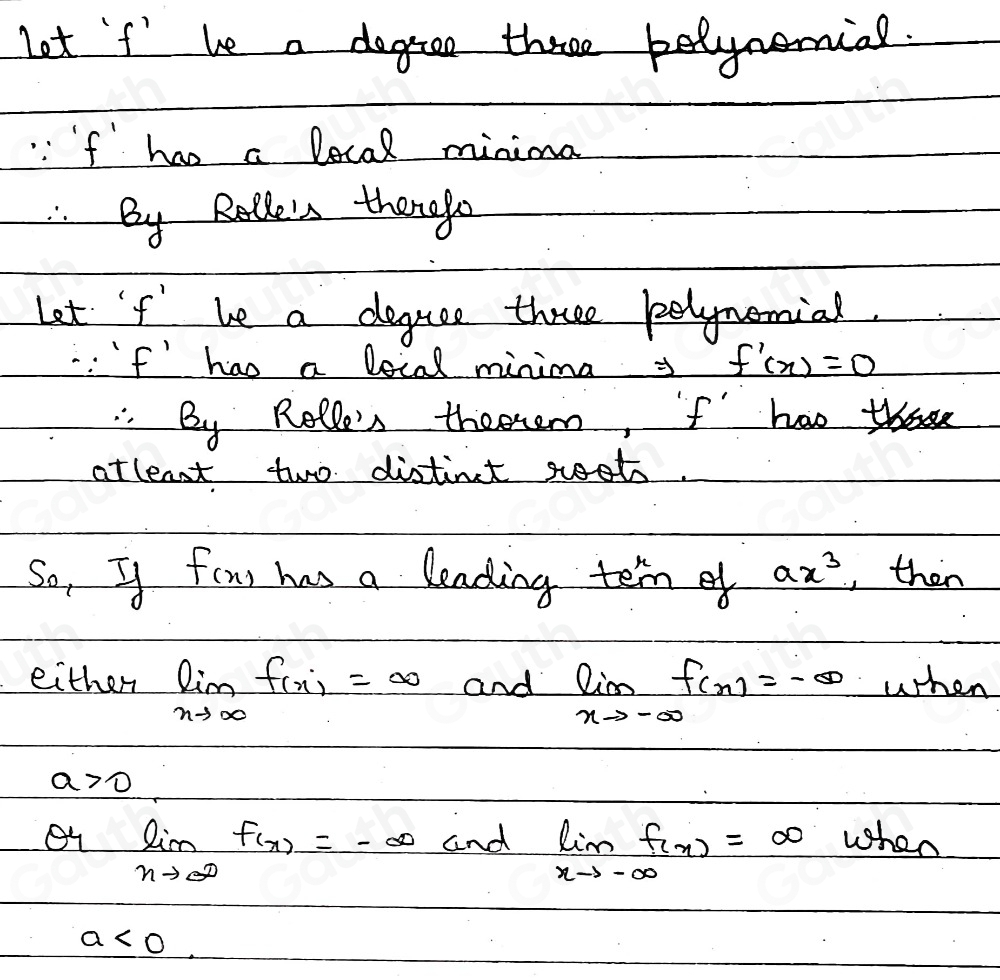 Let 'f' be a degree three polynomial.
∵ 'f' has a local minima
∴ By Rolle's therefo
Let 'f' be a degree three polynomial.
∵ 'f' has a local minima ⇒ f'(x) = 0
∴ By Rolle's theorem, 'f' has
atleast two distinct roots.
So, If f(x) has a leading term of ax³, then
either lim f(x) = ∞ and lim f(x) = -∞ when
x→∞ x→-∞
a>0
or lim f(x) = -∞ and lim f(x) = ∞ when
x→∞ x→-∞
a<0.